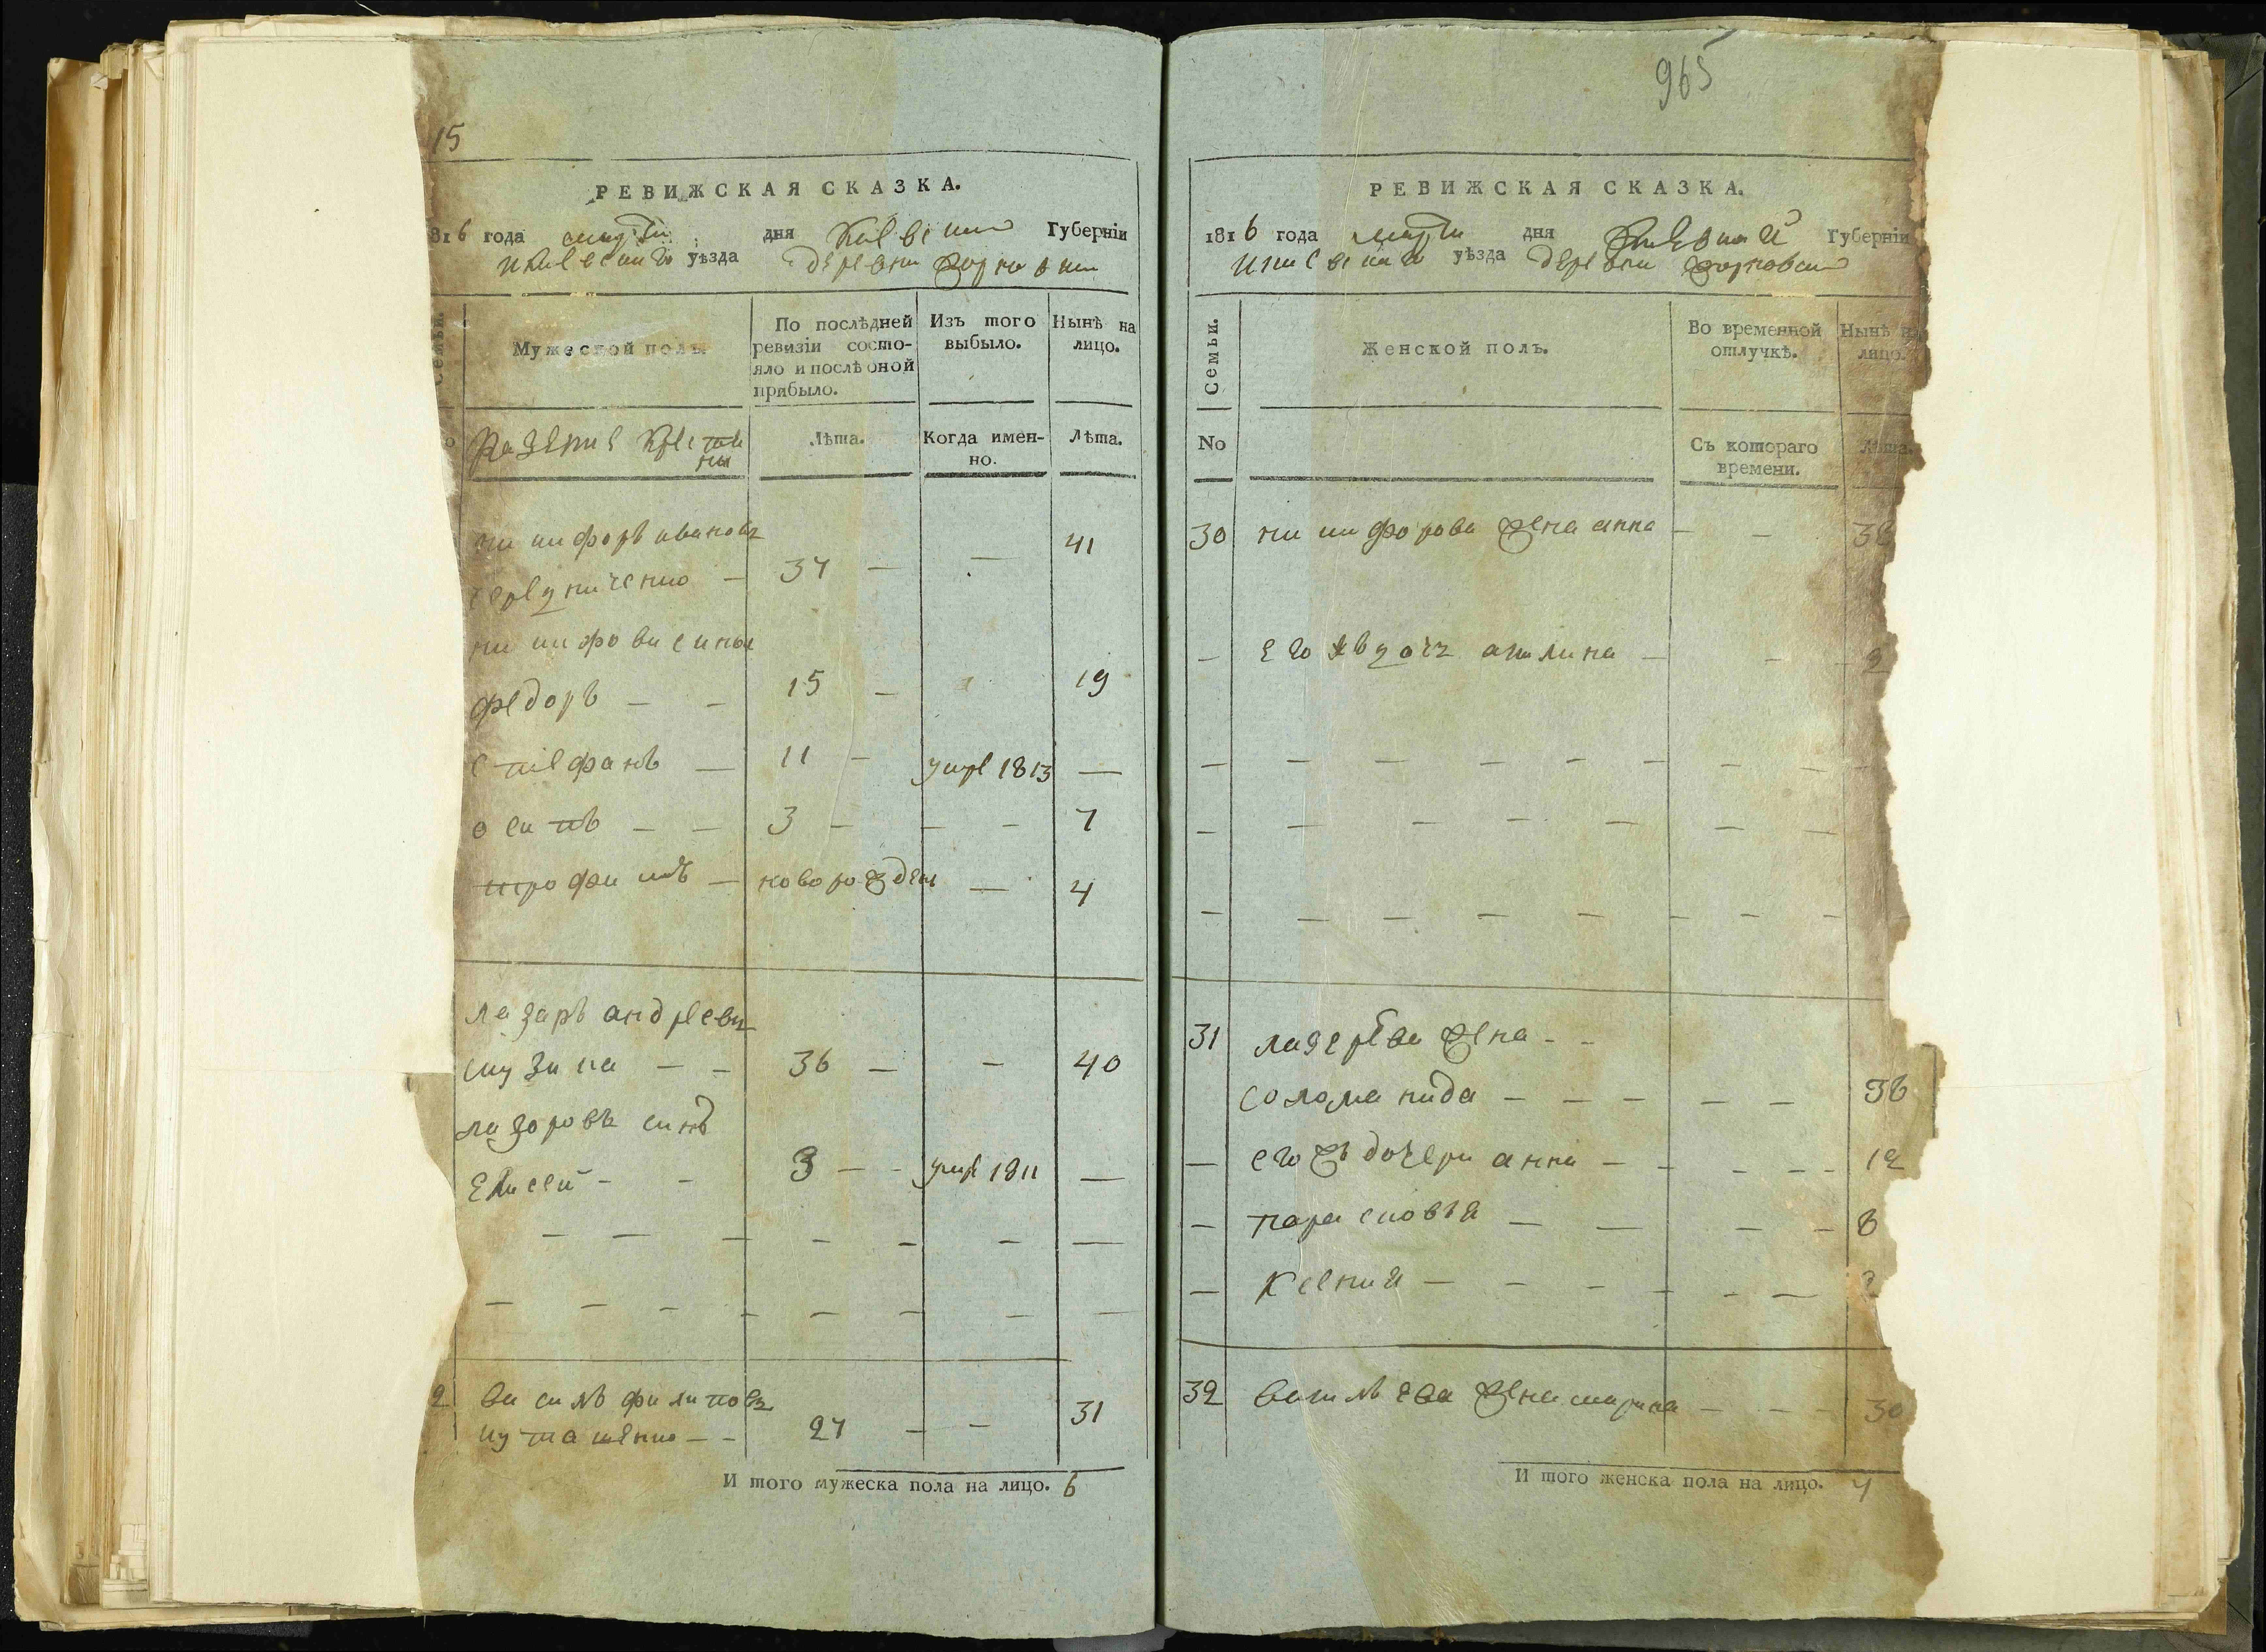 15
РЕВИЖСКАЯ СКАЗКА.
1816 года марта дня Киевской Губерніи
уѣзда деревни
Семьи.
Мужеской полъ.
По послѣдней ревизіи состояло и послѣ оной прибыло.
Изъ того выбыло.
Нынѣ на лицо.
Казение крестяны
Лѣта.
Когда именно.
Лѣта.
никифоръ ивановъ
37 — — 41
никифорови сины
федоръ — — 15 — 19
стефанъ — 11 — умре 1813 —
осипъ — — 3 — — — 7
трофимъ — новорожден — 4
лазаръ андреевъ
музика — — 36 — — 40
лазоровъ синъ
елисей — — 3 — — умре 1811 —
2 василь филиповъ
27 — — 31
И того мужеска пола на лицо. 6
965
РЕВИЖСКАЯ СКАЗКА.
1816 года марта дня Киевской Губерніи
уѣзда деревни
Семьи.
Женской полъ.
Во временной отлучкѣ.
Нынѣ на лицо.
No
Съ котораго времени.
Лѣта.
30 никифорова жена анна — —
— его дочь акилина — — —
31 лазерева жена - -
соломанида — — — — — 36
— его жъ дочери анна — — — — — 12
— парасковія — — — — 8
— Ксения — — — — — —
32 василѣева жена марина — — — 30
И того женска пола на лицо.